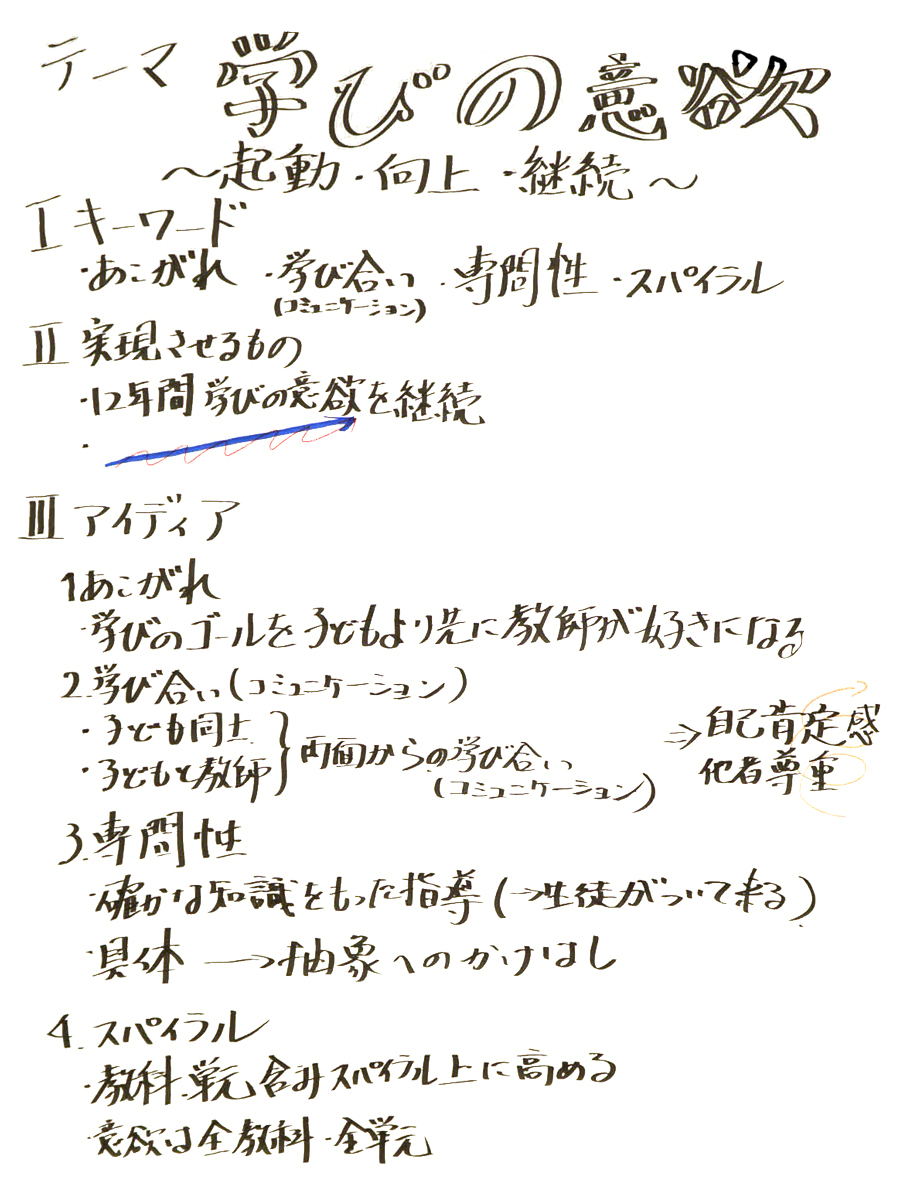 テーマ 学びの意欲
～起動・向上・継続～
Ⅰ キーワード
・あこがれ ・学び合い ・専門性 ・スパイラル
(コミュニケーション)
Ⅱ 実現させるもの
・12年間 学びの意欲を継続
・
Ⅲ アイディア
1 あこがれ
・学びのゴールを子どもより先に教師が好きになる
2.学び合い(コミュニケーション)
・子ども同士
・子どもと教師
両面からの学び合い
(コミュニケーション)
⇒自己肯定感
他者尊重
3.専門性
・確かな知識をもった指導(→生徒がついて来る)
・具体 → 抽象へのかけはし
4.スパイラル
・教科・単元含みスパイラル上に高める
・意欲は全教科・全単元